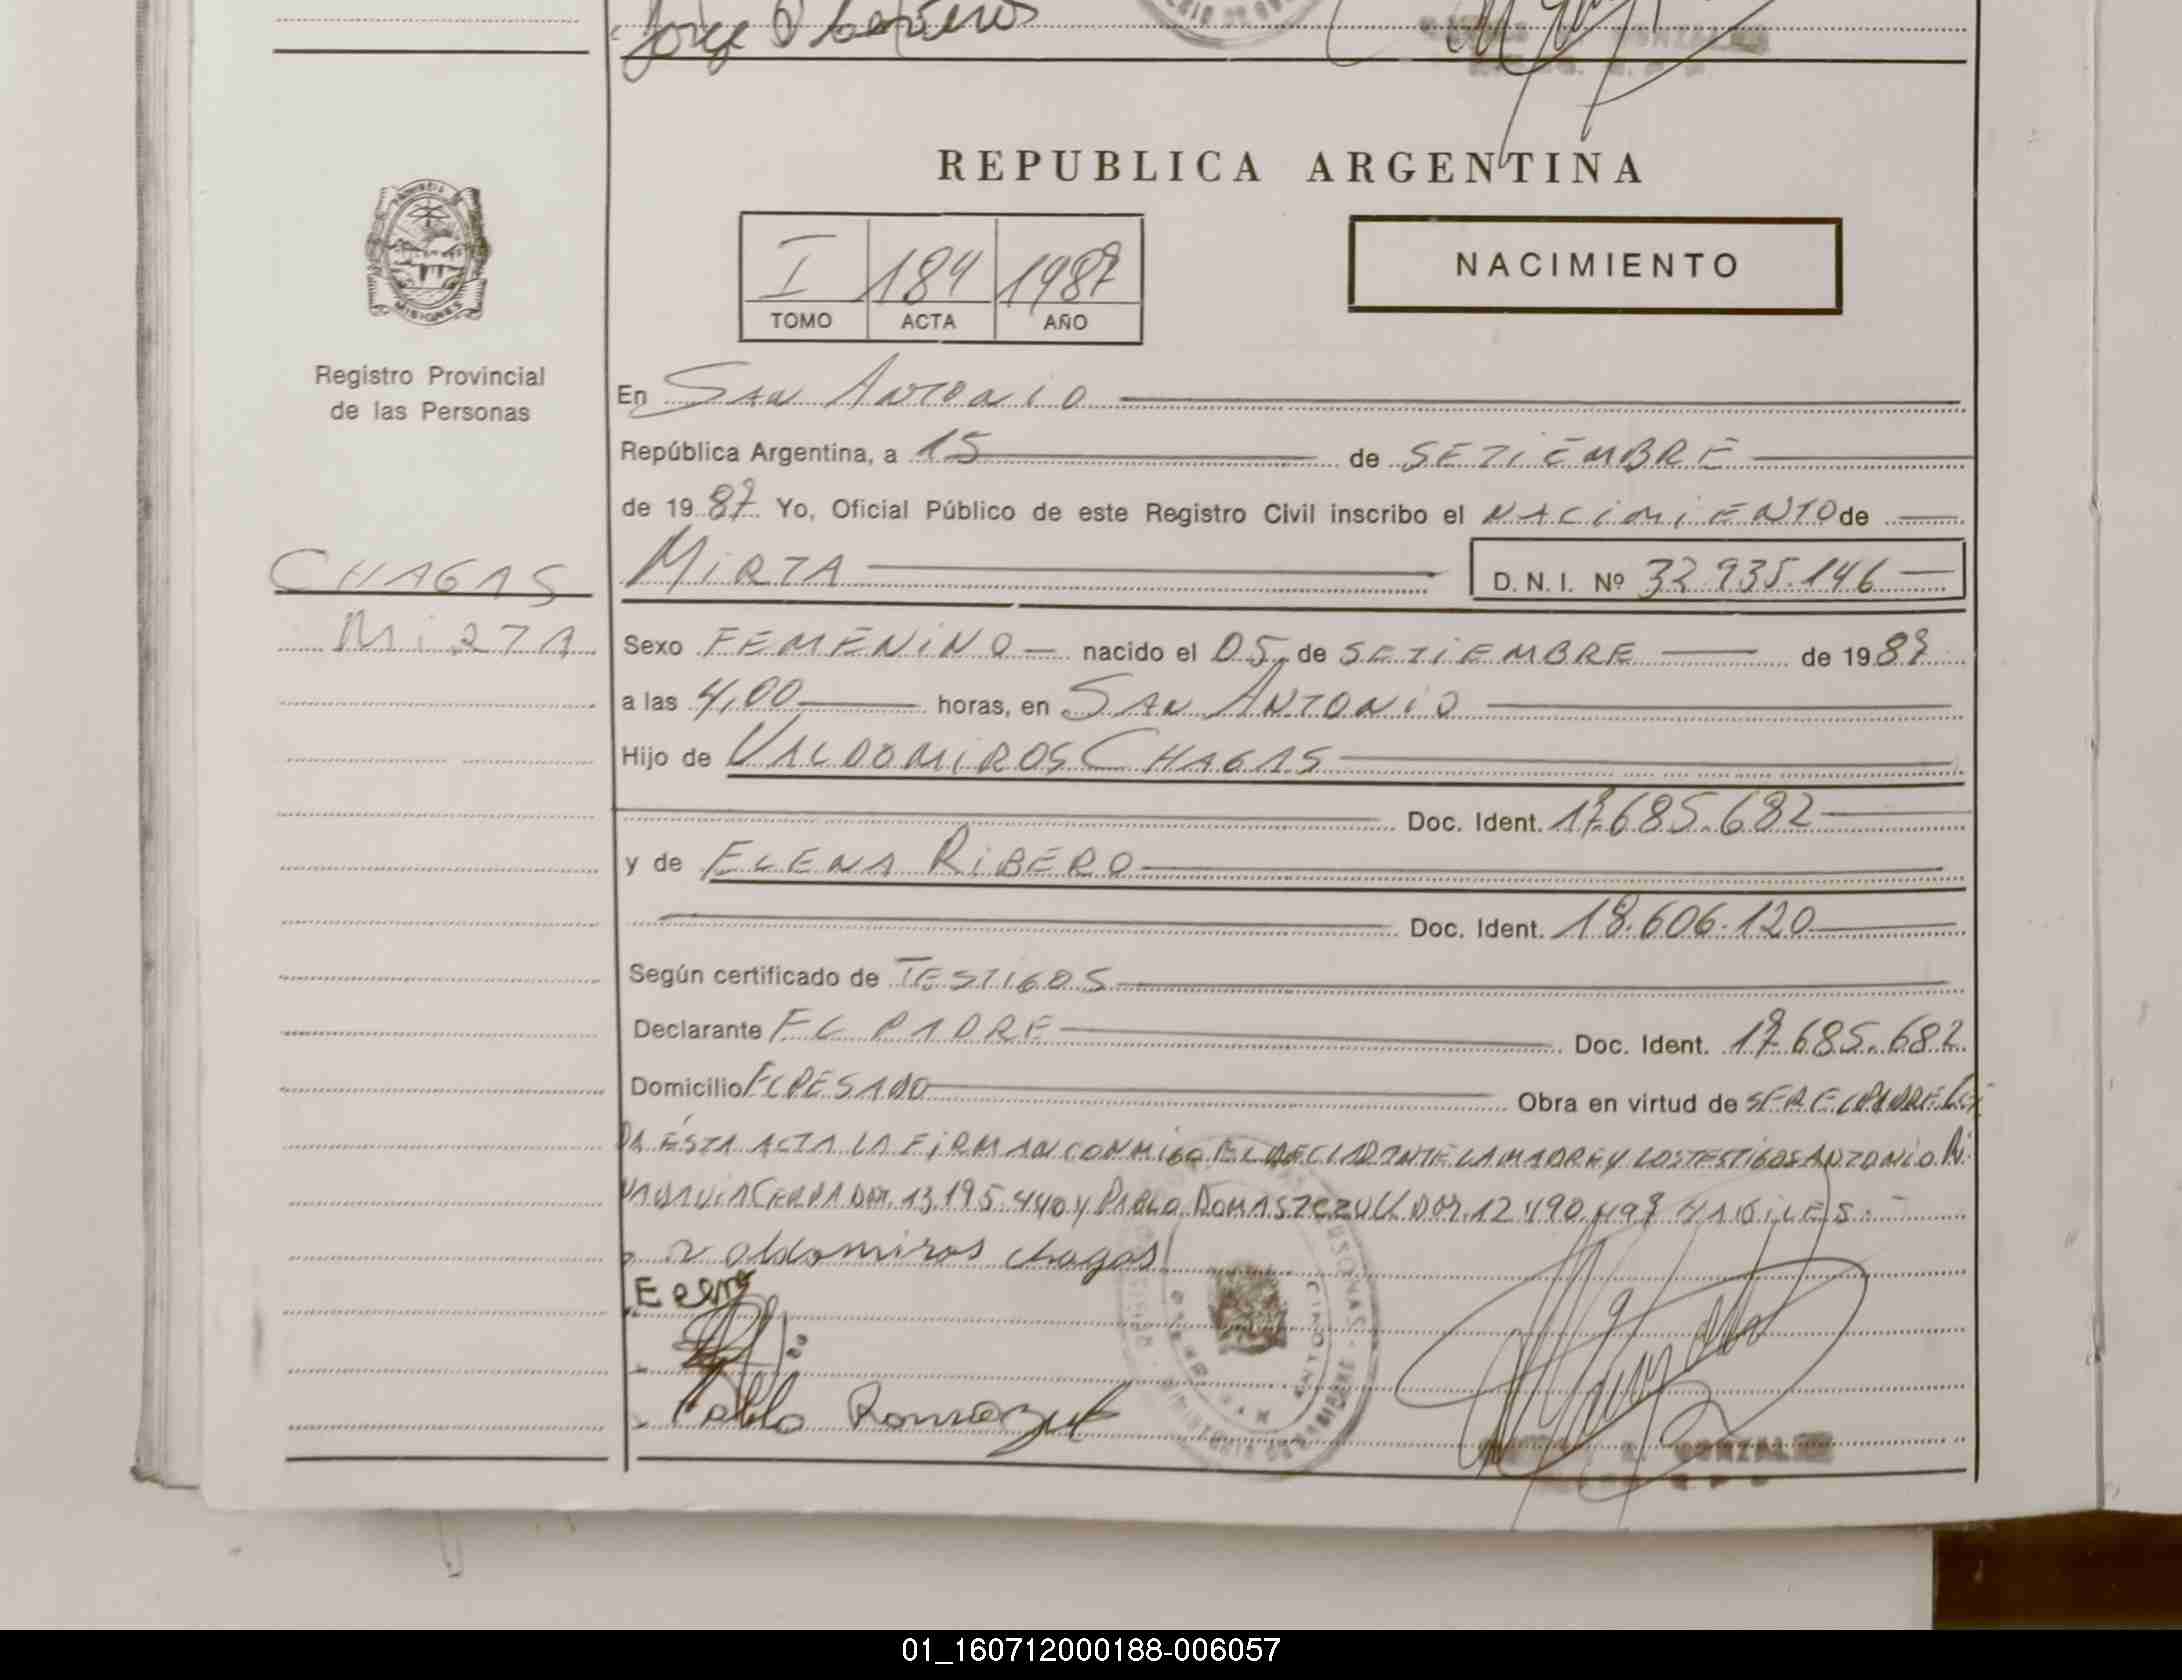 Jorge
REPUBLICA ARGENTINA
PROVINCIA DE
MISIONES
I 184 1987
TOMO ACTA AÑO
NACIMIENTO
Registro Provincial
de las Personas
En SAN ANTONIO
República Argentina, a 15 de SETIEMBRE
de 1987 Yo, Oficial Público de este Registro Civil inscribo el NACIMIENTO de
CHAGAS
MIRTA
MIRTA D. N. I. Nº 32.935.146
Sexo FEMENINO nacido el 05 de SETIEMBRE de 1987
a las 4,00 horas, en SAN ANTONIO
Hijo de VALDOMIROS CHAGAS
Doc. Ident. 17.685.682
y de ELENA RIBERO
Doc. Ident. 18.606.120
Según certificado de TESTIGOS
Declarante EL PADRE Doc. Ident. 17.685.682
Domicilio EL PESADO Obra en virtud de SER EL PADRE LEI
DA ESTA ACTA LA FIRMAN CONMIGO EL DECLARANTE LA MADRE Y LOS TESTIGOS ANTONIO RI
13.195.440 Y PABLO 12.490.497 HABILES.
Valdomiros chagas
Eelena
Pablo
GONZALEZ
01_160712000188-006057